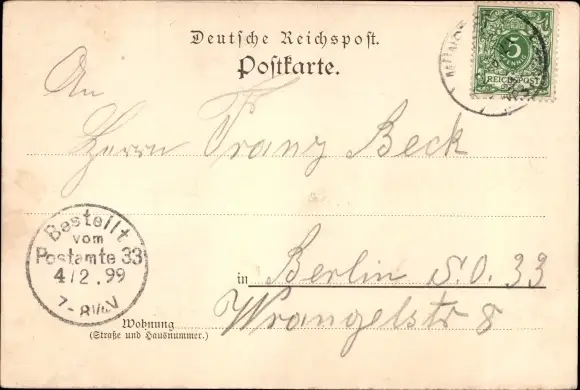 Deutsche Reichspost.
Postkarte.
5
REICHSPOST
An
Herrn Franz Beck
Bestellt
vom
Postamte 33
4/2.99
7-8½V
in Berlin S.O. 33
Wohnung
(Straße und Hausnummer.)
Wrangelstr 8